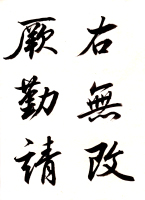 右無改
厥勤請